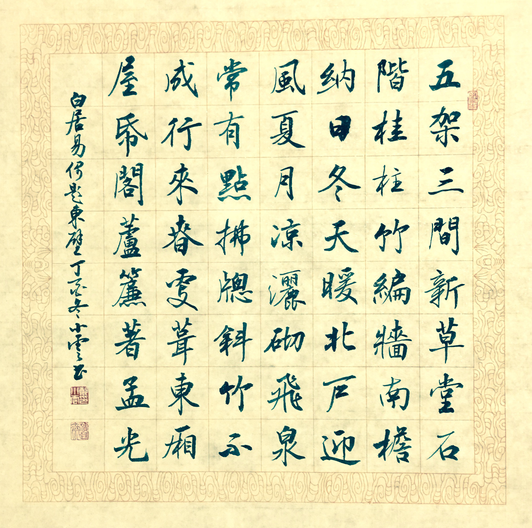 五架三間新草堂石
階桂柱竹編牆南檐
納日冬天暖北戶迎
風夏月涼灑砌飛泉
常有點拂牕斜竹不
成行來春更葺東廂
屋帋閣蘆簾著孟光
白居易偶題東壁丁酉冬小雲書